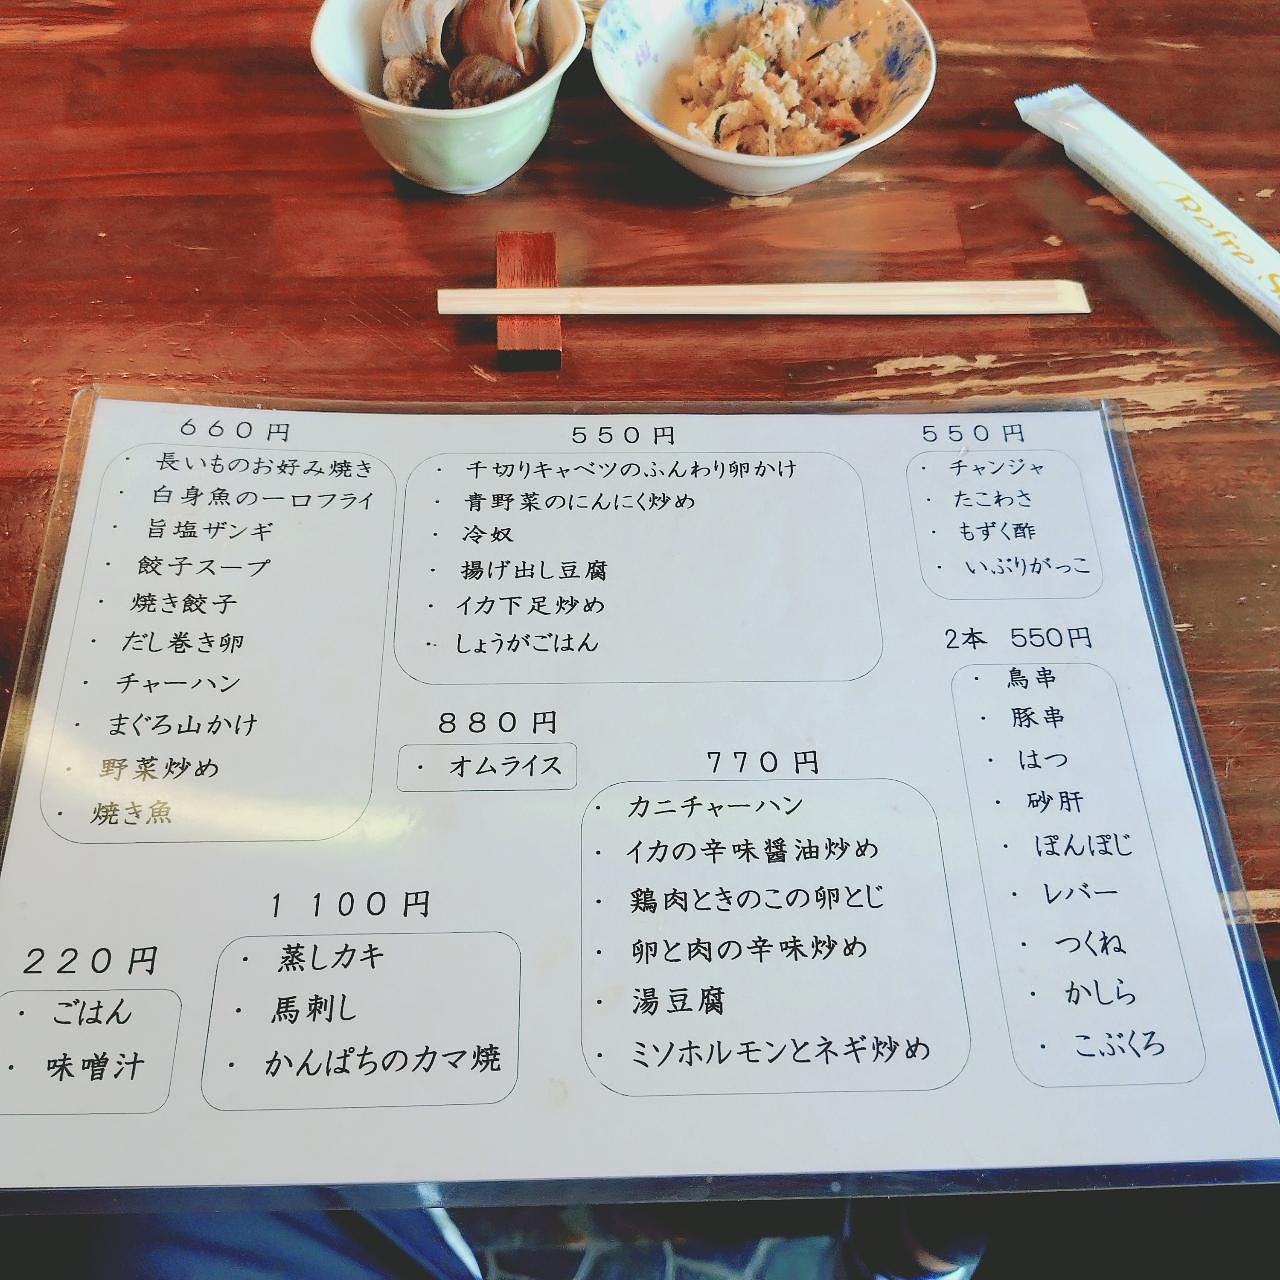 Refre
660円
・長いものお好み焼き
・白身魚の一口フライ
・旨塩ザンギ
・餃子スープ
・焼き餃子
・だし巻き卵
・チャーハン
・まぐろ山かけ
・野菜炒め
・焼き魚
550円
・千切りキャベツのふんわり卵かけ
・青野菜のにんにく炒め
・冷奴
・揚げ出し豆腐
・イカ下足炒め
・しょうがごはん
550円
・チャンジャ
・たこわさ
・もずく酢
・いぶりがっこ
2本 550円
・鳥串
・豚串
・はつ
・砂肝
・ぽんぽじ
・レバー
・つくね
・かしら
・こぶくろ
880円
・オムライス
770円
・カニチャーハン
・イカの辛味醤油炒め
・鶏肉ときのこの卵とじ
・卵と肉の辛味炒め
・湯豆腐
・ミソホルモンとネギ炒め
1100円
・蒸しカキ
・馬刺し
・かんぱちのカマ焼
220円
・ごはん
・味噌汁